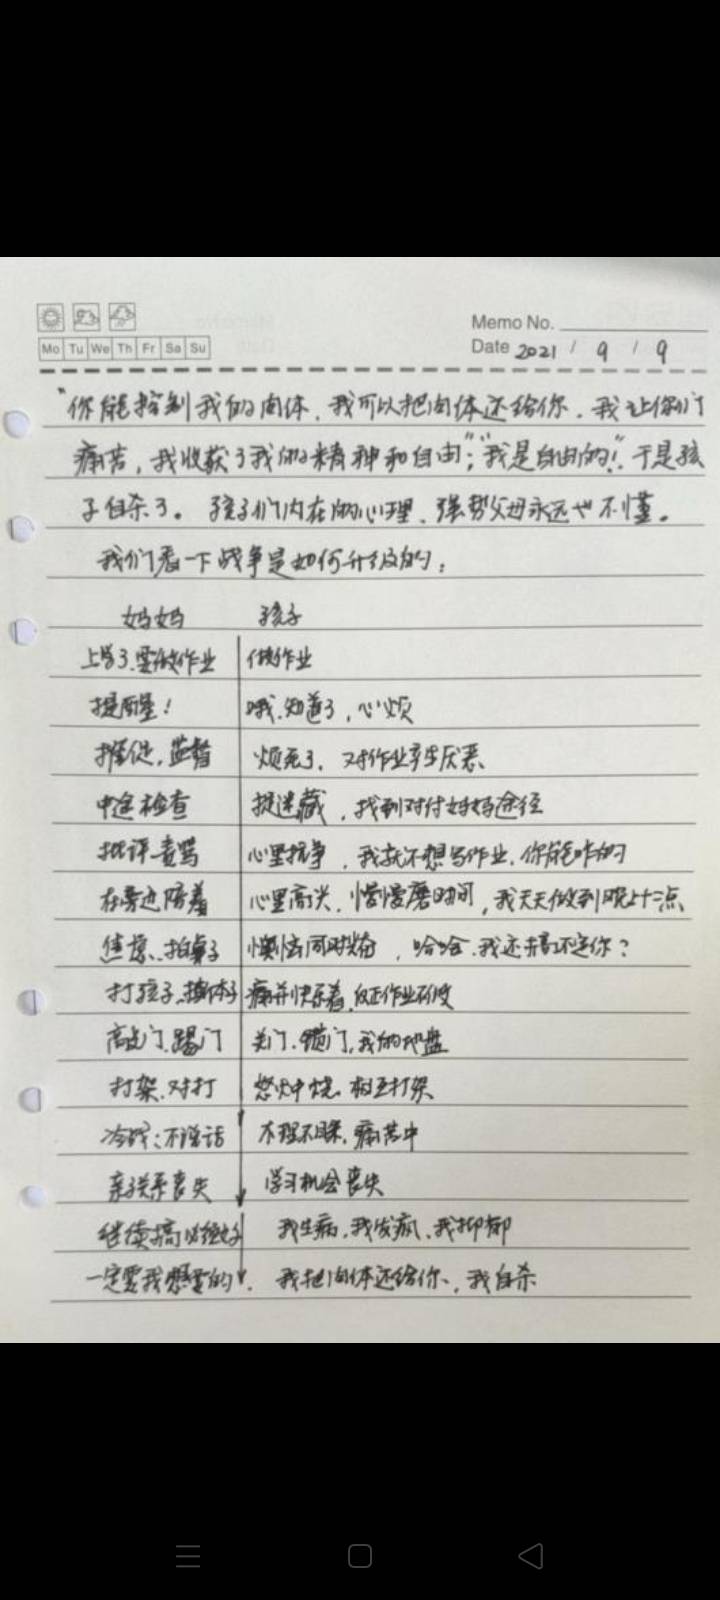 Memo No.
Mo Tu We Th Fr Sa Su
Date 2021 / 9 / 9
"你能控制我的肉体，我可以把肉体还给你，我让你们
痛苦，我收获了我的精神和自由"；"我是自由的！"于是孩
子自杀了。孩子们内在的心理，强势父母永远也不懂。
我们看一下战争是如何升级的：
妈妈 孩子
上学了，要做作业 做作业
提醒！ 哦，知道了，心烦
催促，监督 烦死了，对作业产生厌恶
中途检查 捉迷藏，找到对付妈妈途径
批评责骂 心里抗争，我就不想写作业，你能咋的
在旁边陪着 心里高兴，慢慢磨时间，我天天做到晚上十二点
焦虑、拍桌子 懊恼同时兴奋，哈哈，我还搞不定你？
打孩子、撕本子 痛并快乐着，反正作业不做
敲门、踢门 关门、锁门，我的地盘
打架、对打 怒火中烧，相互打架
冷战：不说话 不理不睬，痛苦中
亲子关系丧失 学习机会丧失
继续搞 我生病，我发疯，我抑郁
一定要我想要的 我把肉体还给你，我自杀